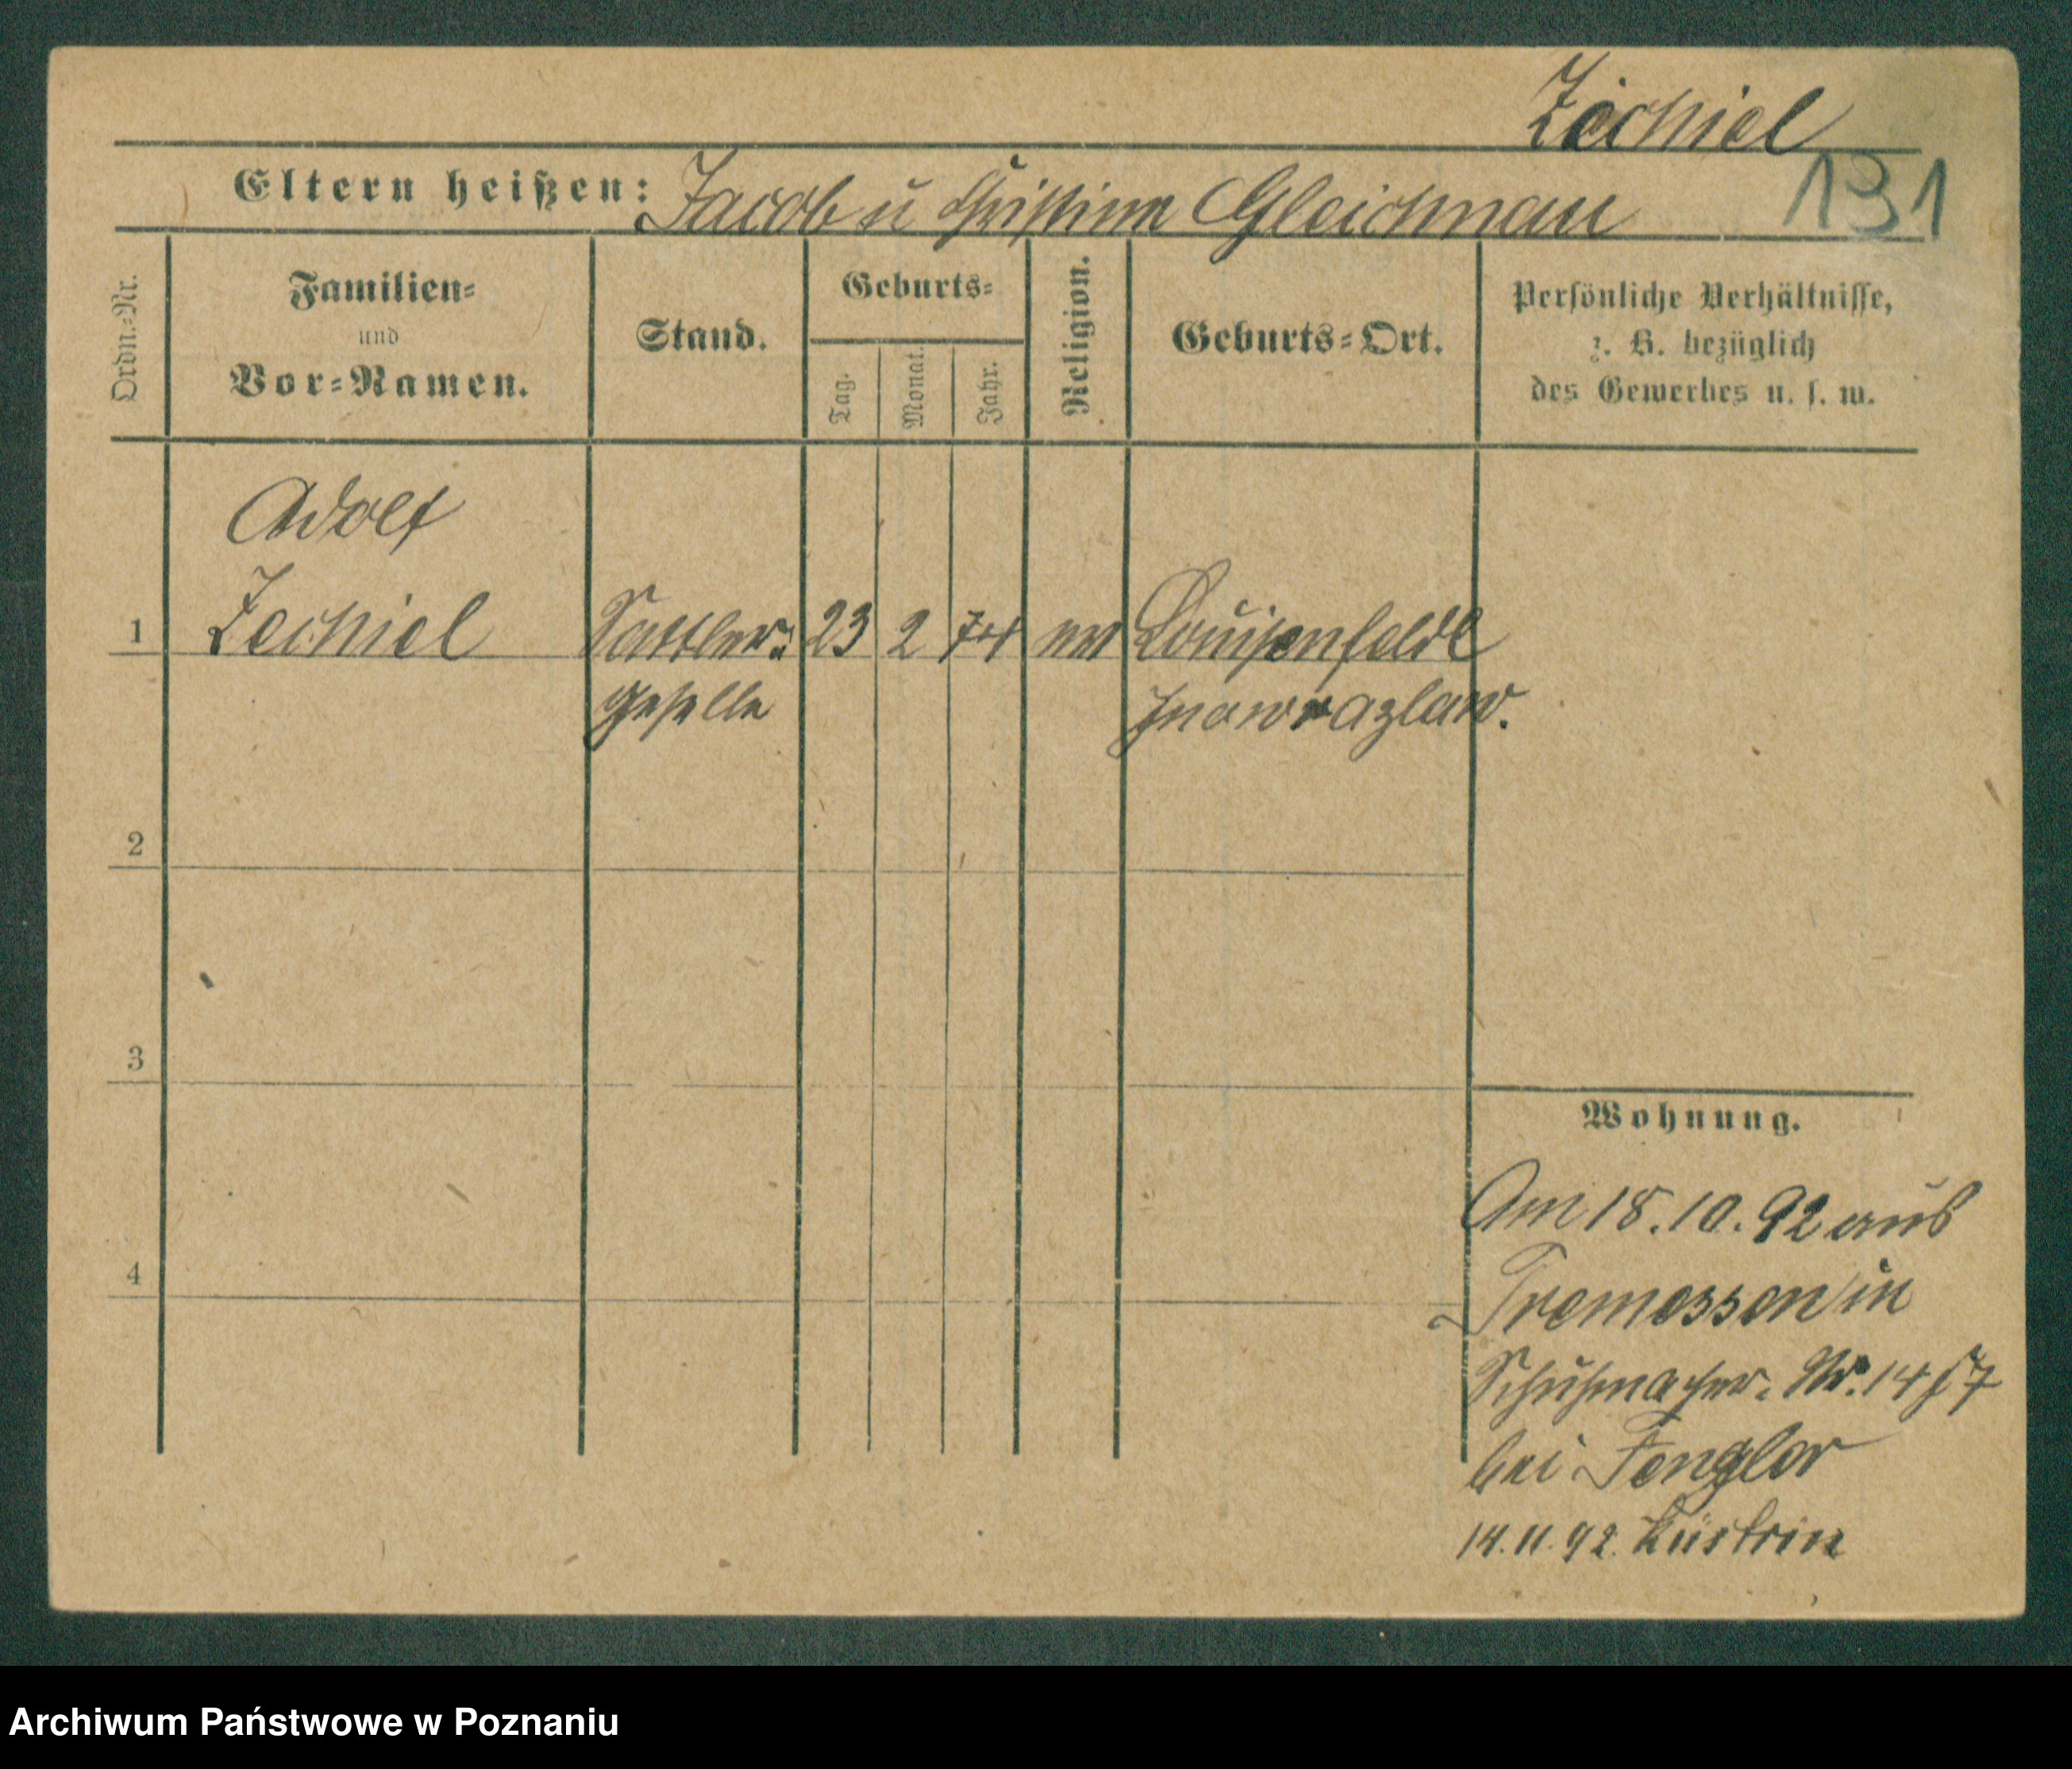 Zechiel
131
Eltern heißen: Jacob u Christine Gleichman
Ordn.=Nr.
Familien=
und
Vor=Namen.
Stand.
Geburts=
Tag.
Monat.
Jahr.
Religion.
Geburts=Ort.
Persönliche Verhältnisse,
z. B. bezüglich
des Gewerbes u. s. w.
Adolf
1 Zechiel Sattler= 23 2 74 ev Louisenfelde
geselle Inowrazlaw.
2
3
4
Wohnung.
Am 18.10.92 aus
Tremessen in
Schuhmacher. Nr. 14
bei Fengler
14.11.92. Küstrin
Archiwum Państwowe w Poznaniu